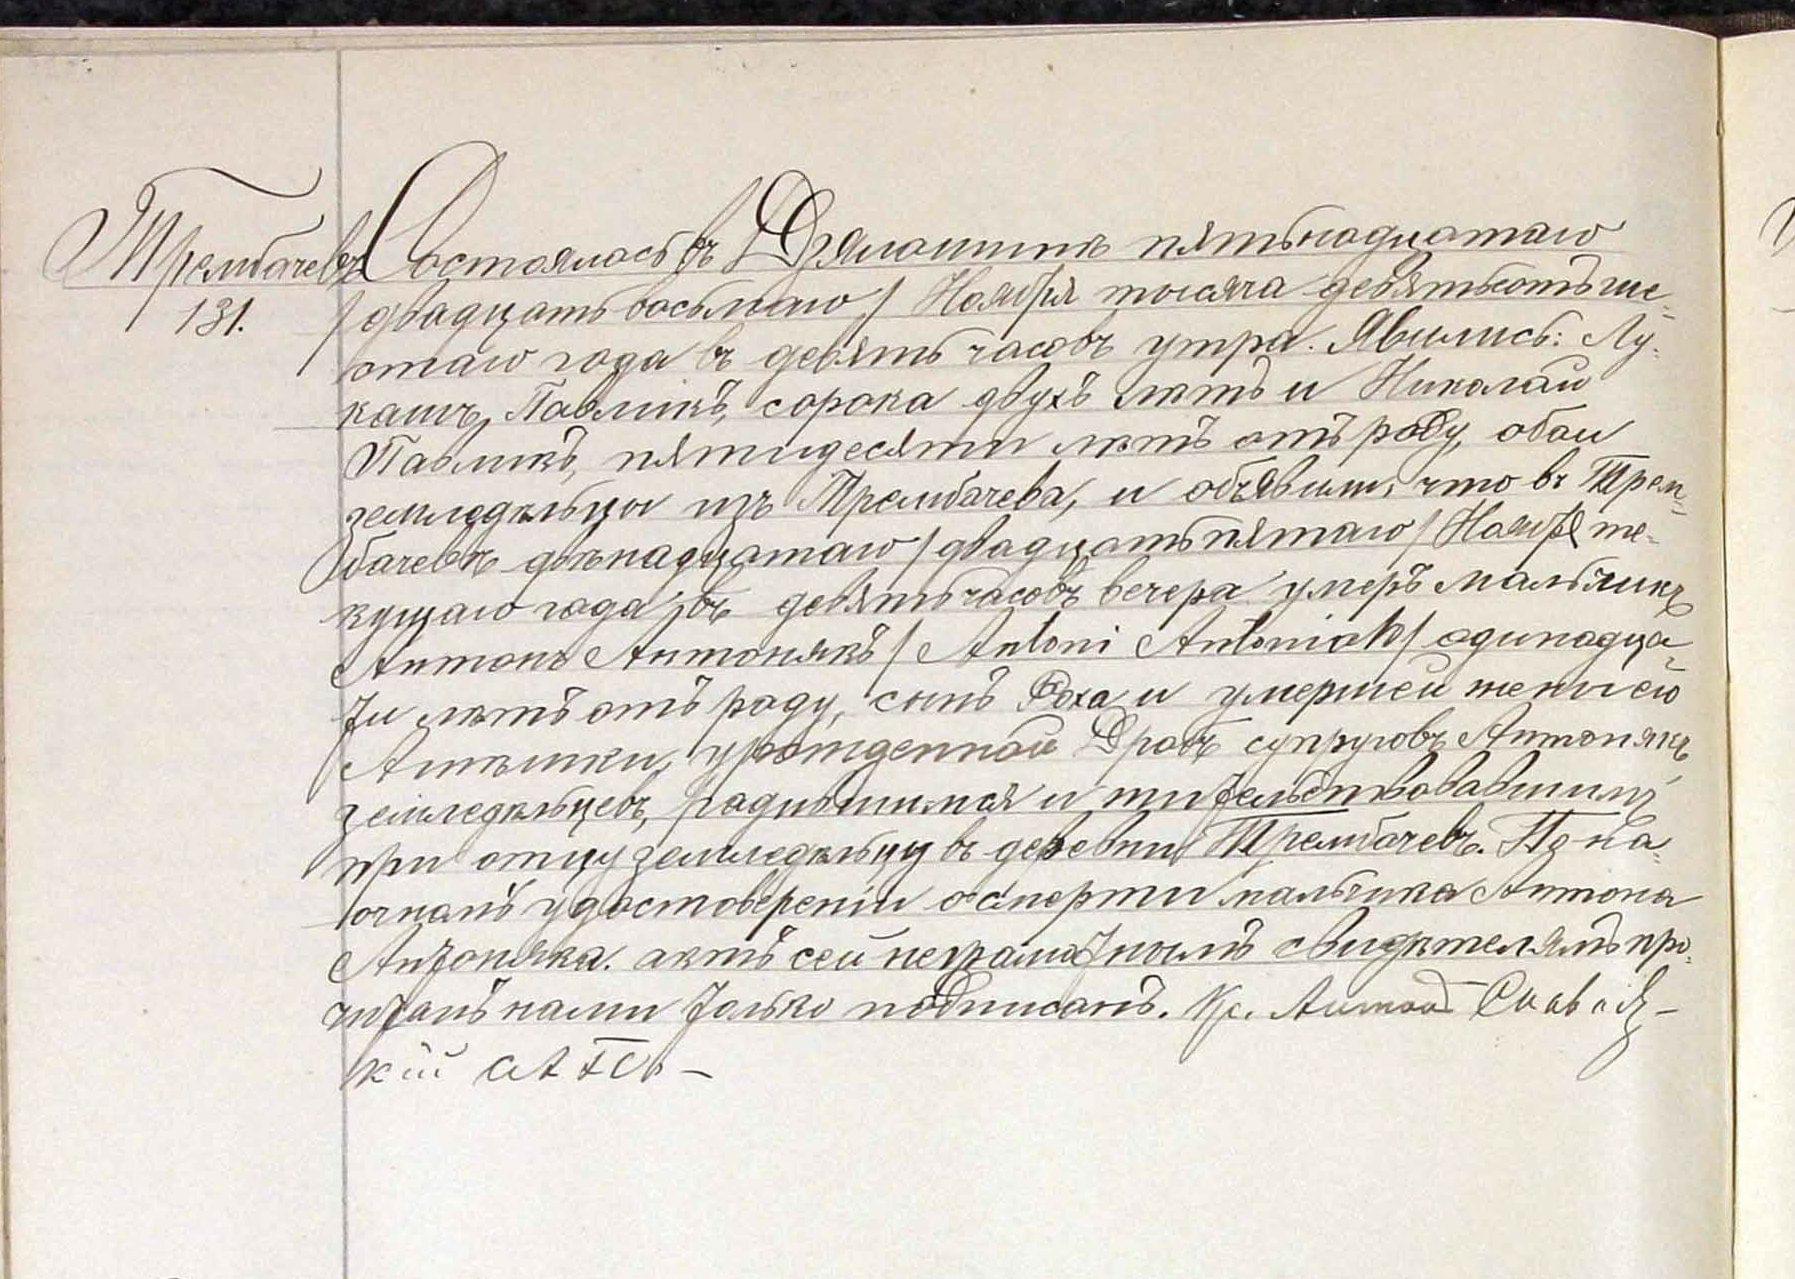 Трембачевъ
131.
Состоялось въ Дзялошинѣ пятьнадцатаго
/двадцать восьмаго/ Ноября тысяча девятьсотъ ше-
стаго года въ девять часовъ утра. Явились: Лу-
кашъ Павликъ, сорока двухъ лѣтъ и Николай
Павликъ, пятидесяти лѣтъ отъ роду, обои
земледѣльцы изъ Трембачева, и объявили, что въ Трем-
бачевѣ двѣнадцатаго /двадцать пятаго/ Ноября те-
кущаго года, въ девять часовъ вечера умеръ мальчикъ
Антонъ Антонякъ /Antoni Antoniak/ одинадца-
ти лѣтъ отъ роду, сынъ Роха и умершей жены его
урожденной супруговъ Антонякъ,
земледѣльцевъ, родившимся и жительствовавшимъ
при отцу земледѣльцу въ деревни Трембачевъ. По на-
очномъ удостовереніи о смерти мальчика Антона
Антоняка. актъ сей неграматнымъ свидѣтелямъ про-
читанъ нами только подписанъ. Кс.
кій